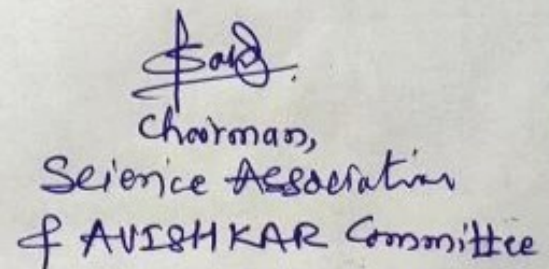 Chairman,
Science Association
& AVISHKAR Committee